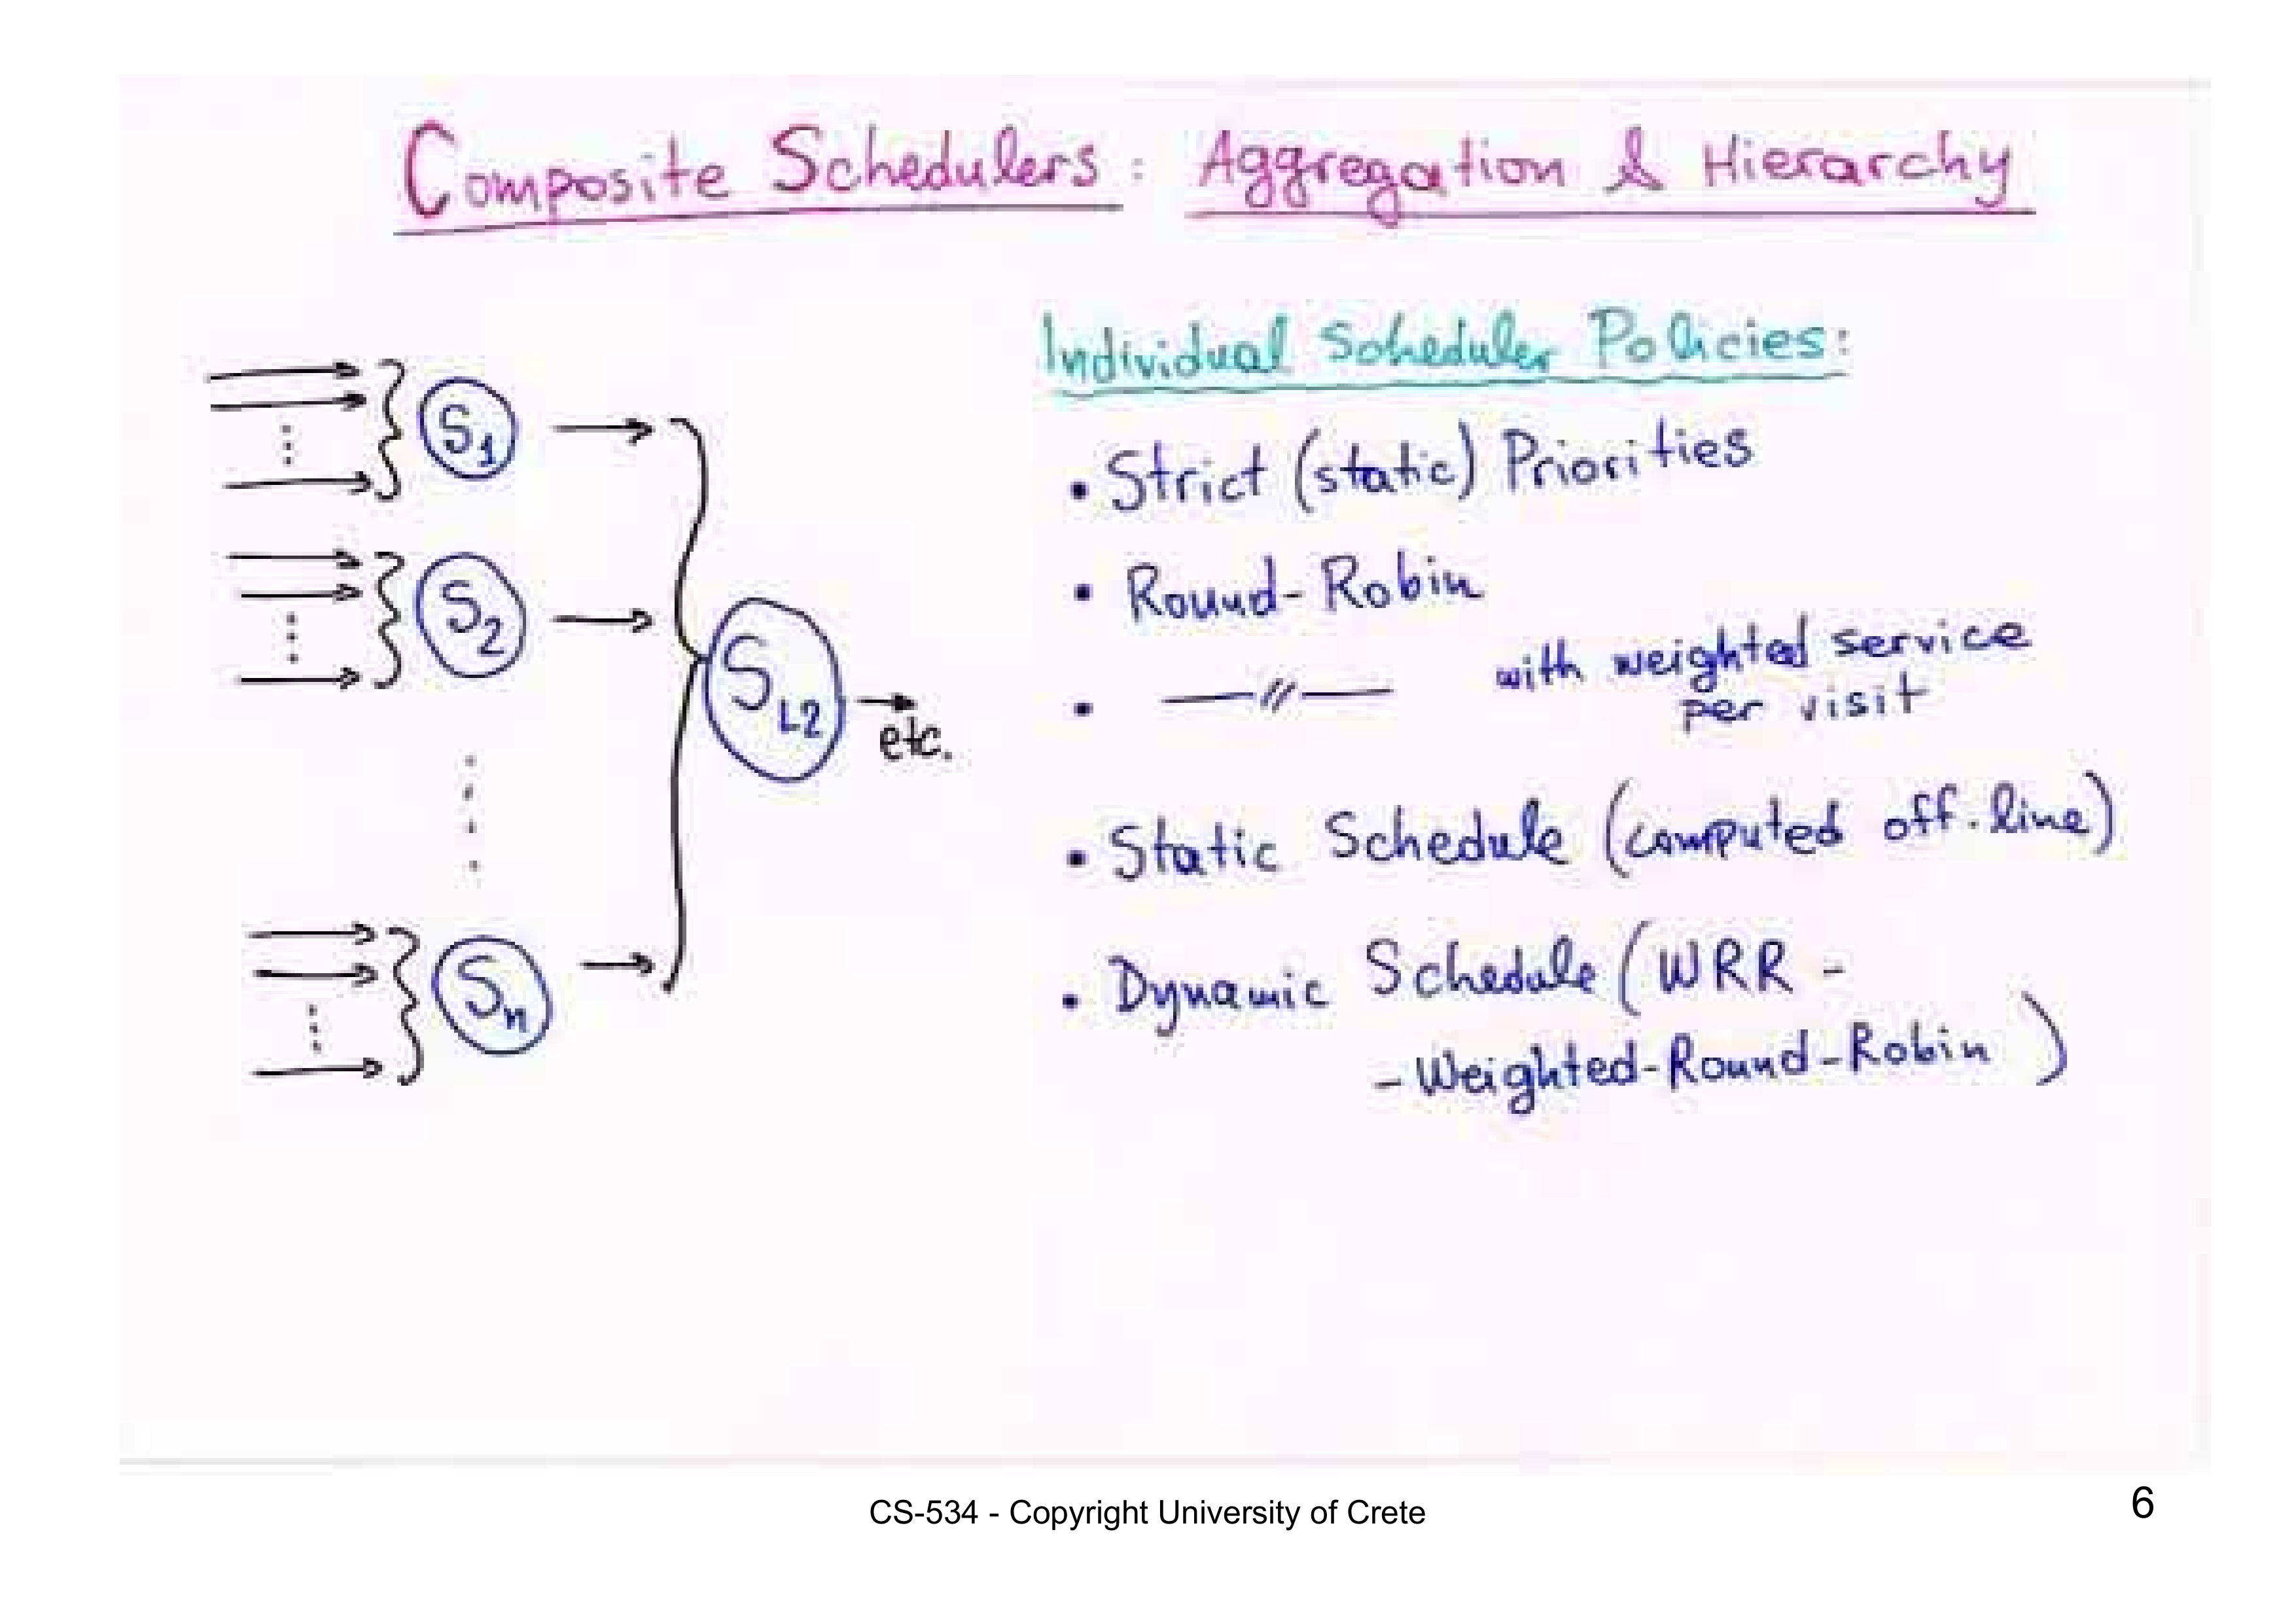 Composite Schedulers : Aggregation & Hierarchy
S1
S2
Sn
SL2
etc.
Individual Scheduler Policies:
• Strict (static) Priorities
• Round-Robin
• —〃— with weighted service
per visit
• Static Schedule (computed off-line)
• Dynamic Schedule (WRR -
- Weighted-Round-Robin )
CS-534 - Copyright University of Crete
6